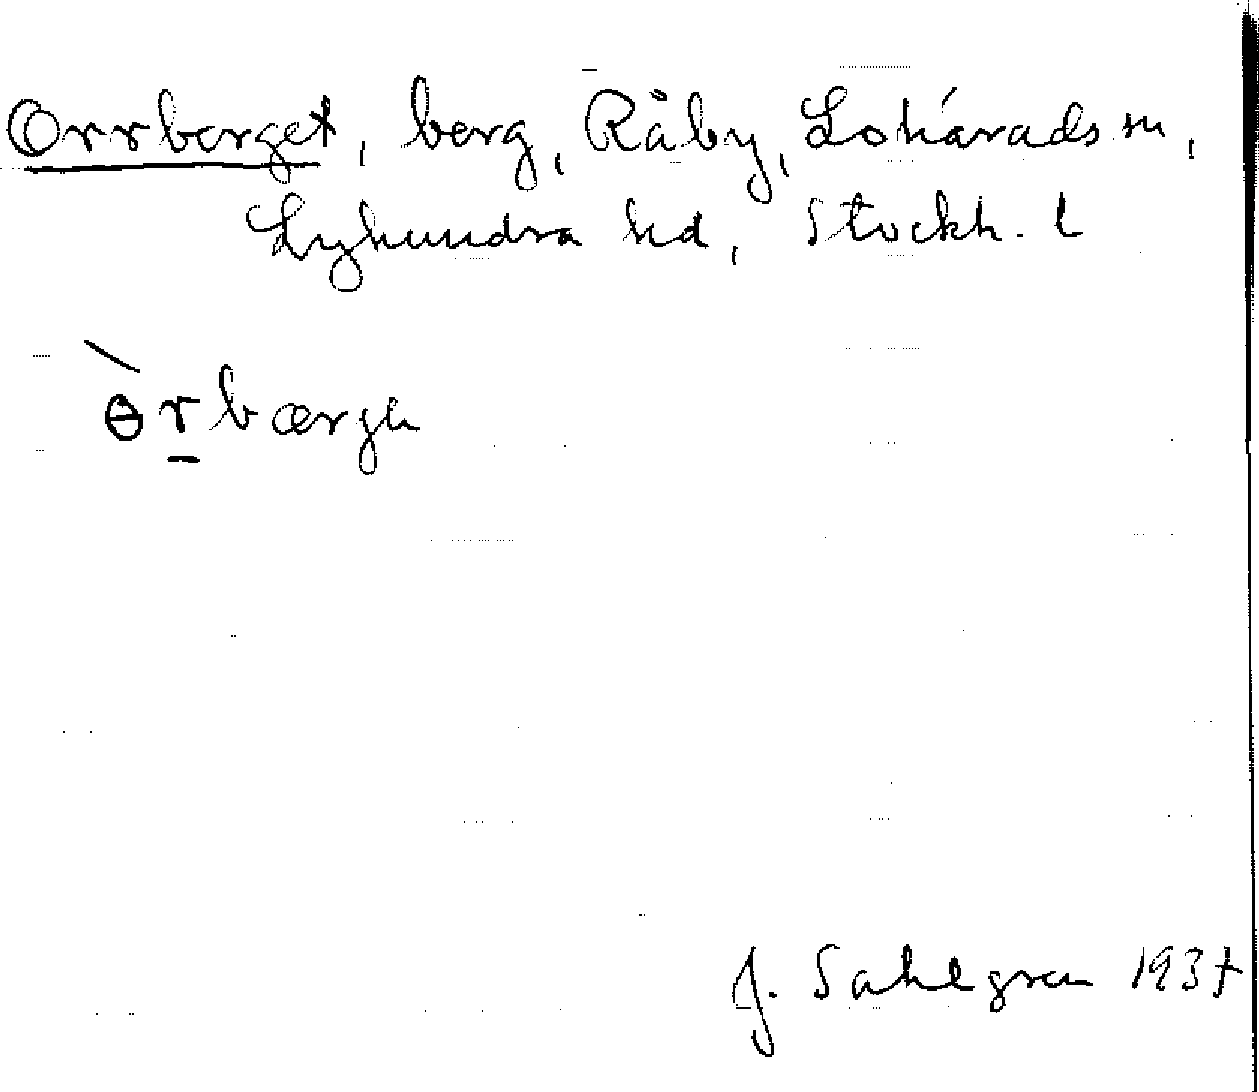 Orrberget, berg, Råby, Lohärads sn,
Lyhundra hd, Stockh. l
`ɵrbærgu
J. Sahlgren 1937